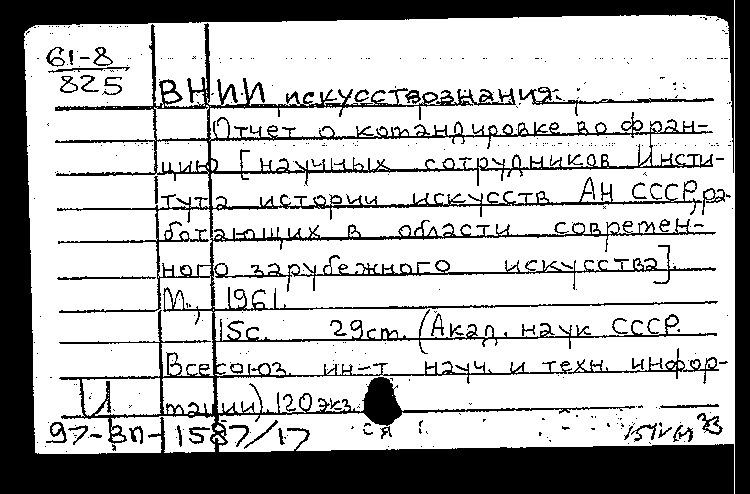 61-8
825
ВНИИ искусствознания.
Отчет о командировке во Фран-
цию [научных сотрудников Инсти-
тута истории искусств АН СССР, ра-
ботающих в области современ-
ного зарубежного искусства].
М., 1961.
15с. 29см. (Акад. наук СССР.
Всесоюз. ин-т науч. и техн. инфор-
мации). 120 экз.
И
97-3п-1587/17 ся